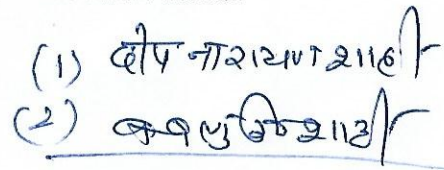 (1) दीप नारायण शाही
(2) शाही